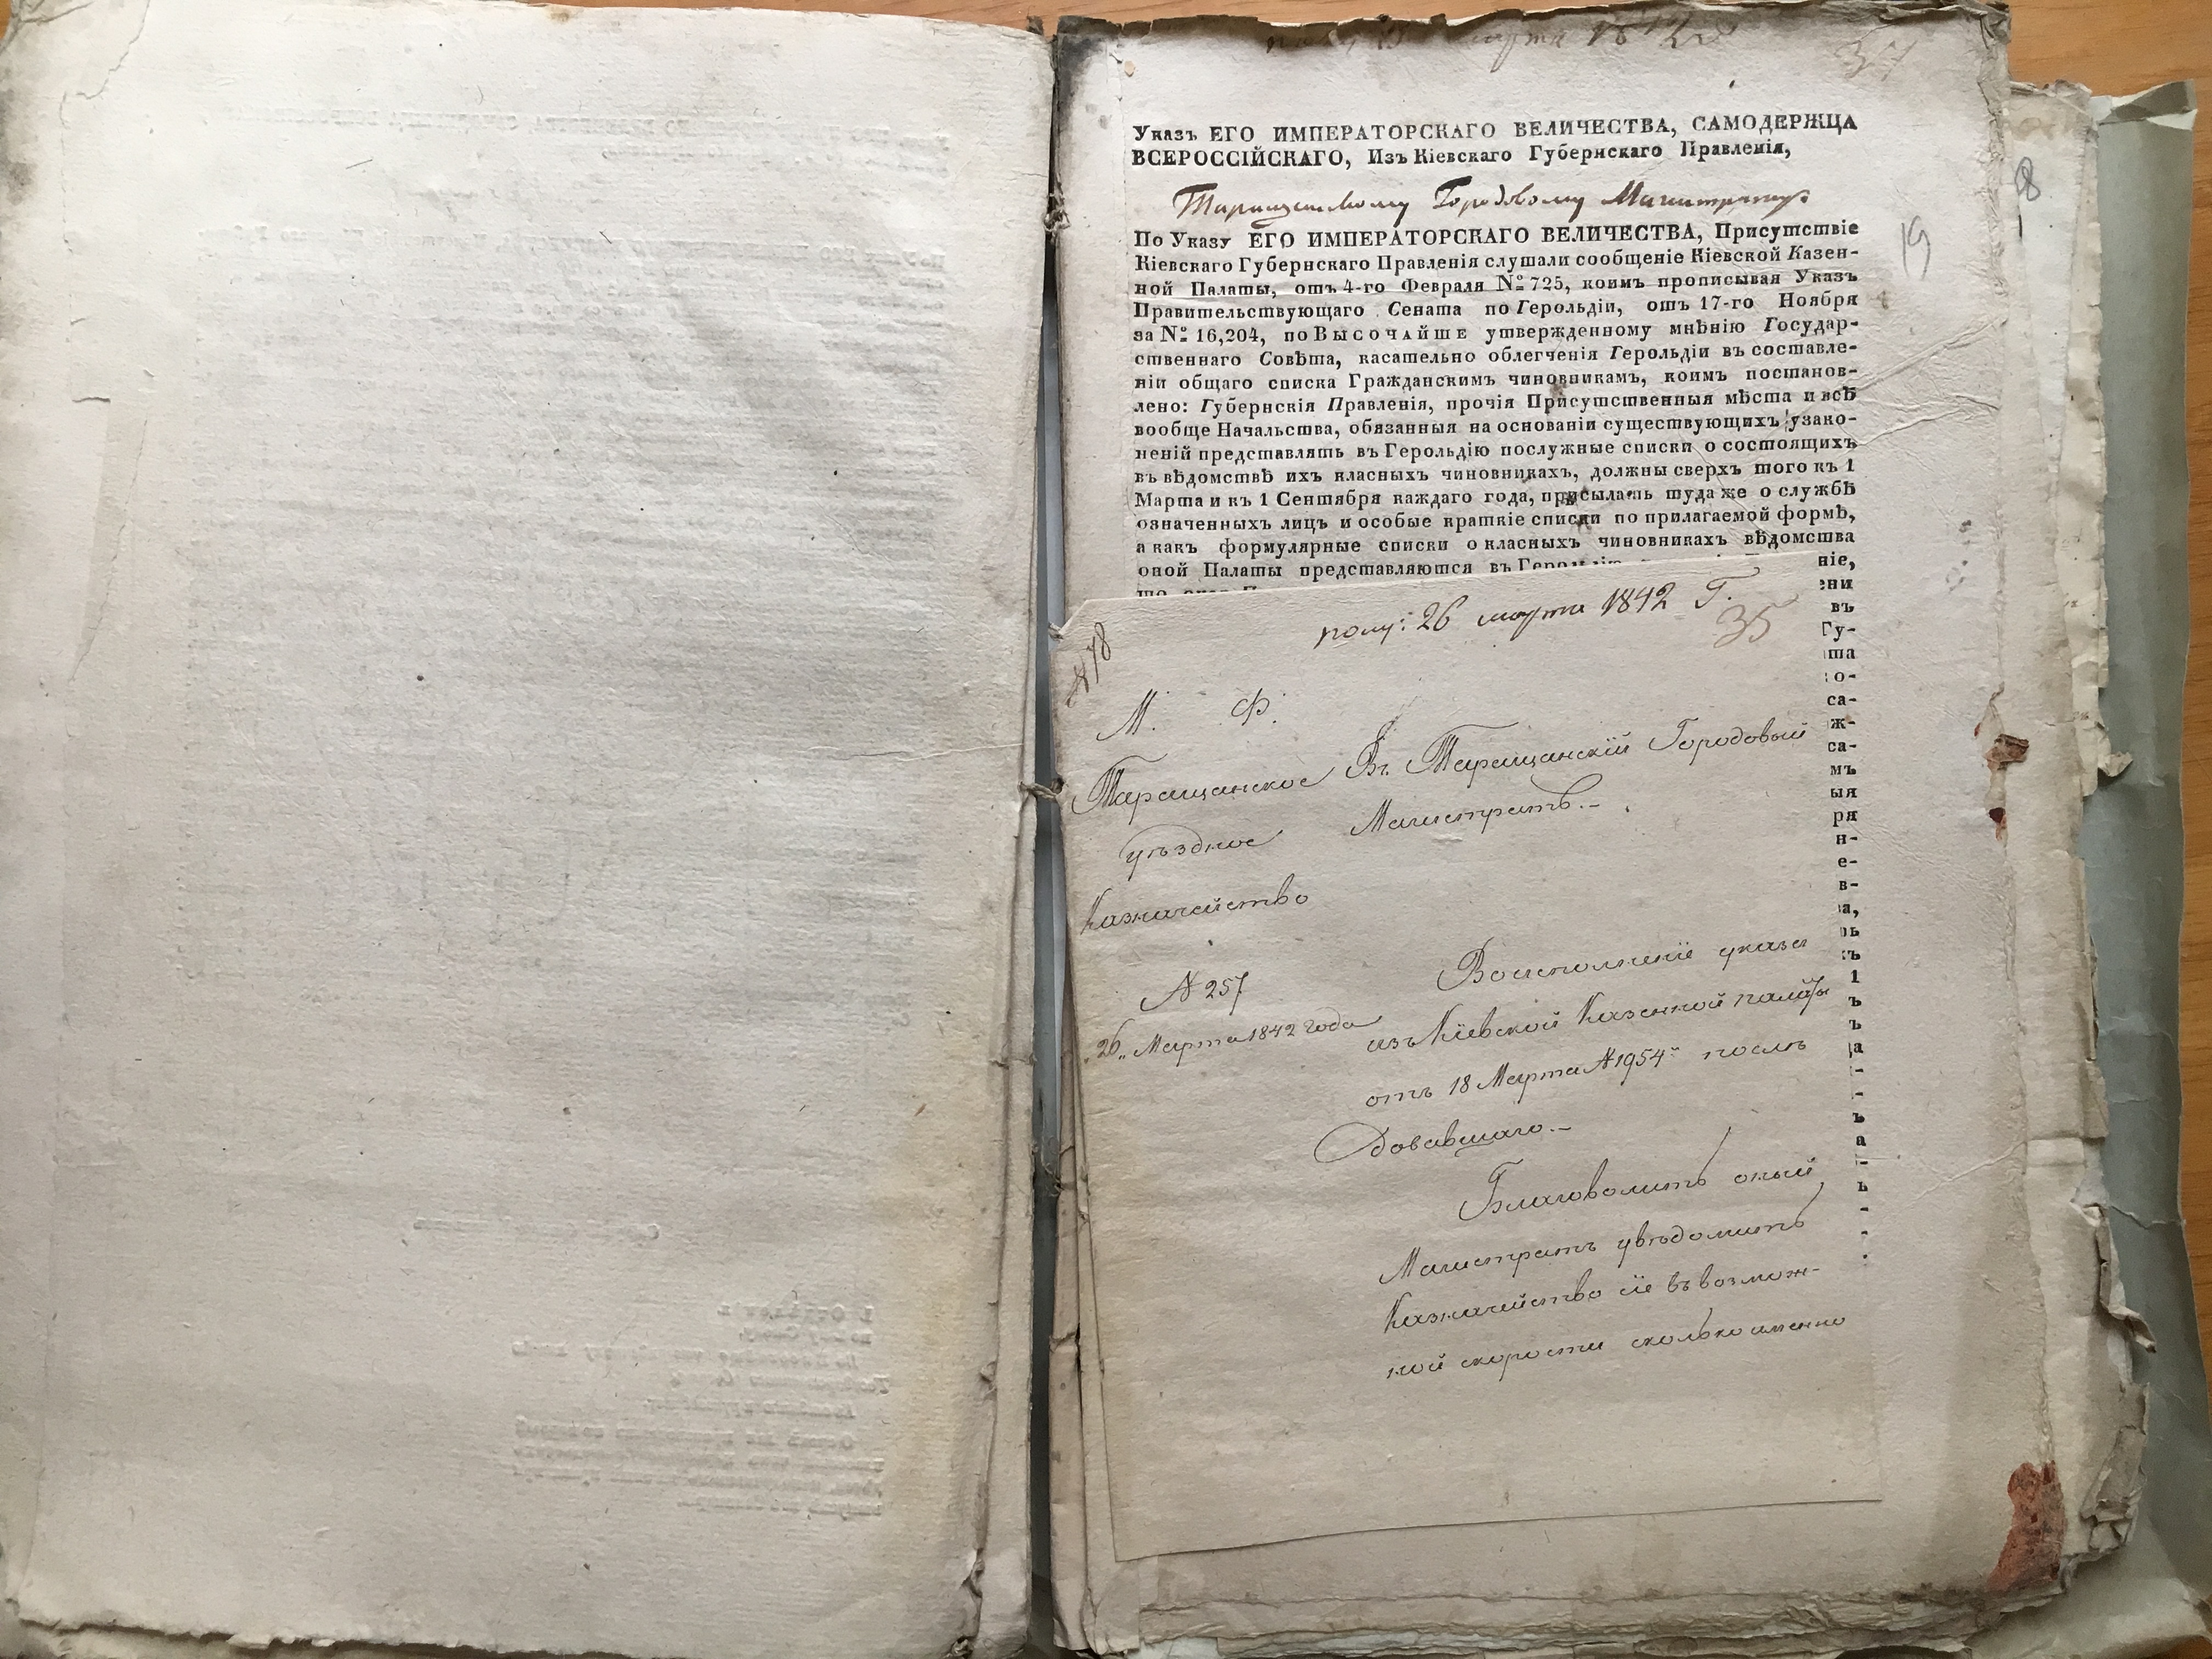 марта 1842
34
Указъ ЕГО ИМПЕРАТОРСКАГО ВЕЛИЧЕСТВА, САМОДЕРЖЦА
ВСЕРОССІЙСКАГО, Изъ Кіевскаго Губернскаго Правленія,
Таращанскому Городовому Магистрату
18
19
По Указу ЕГО ИМПЕРАТОРСКАГО ВЕЛИЧЕСТВА, Присутствіе
Кіевскаго Губернскаго Правленія слушали сообщеніе Кіевской Казен-
ной Палаты, отъ 4-го Февраля № 725, коимъ прописывая Указъ
Правительствующаго Сената по Герольдіи, отъ 17-го Ноября
за № 16,204, по Высочайше утвержденному мнѣнію Государ-
ственнаго Совѣта, касательно облегченія Герольдіи въ составле-
ніи общаго списка Гражданскимъ чиновникамъ, коимъ постанов-
лено: Губернскія Правленія, прочія Присутственныя мѣста и всѣ
вообще Начальства, обязанныя на основаніи существующихъ узако-
неній представлять въ Герольдію послужные списки о состоящихъ
въ вѣдомствѣ ихъ класныхъ чиновникахъ, должны сверхъ того къ 1
Марта и къ 1 Сентября каждаго года, присылать туда же о службѣ
означенныхъ лицъ и особые краткіе списки по прилагаемой формѣ,
а какъ формулярные списки о класныхъ чиновникахъ вѣдомства
оной Палаты представляются въ Герольдію ніе,
ени
въ
Гу-
та
о-
са-
ж-
са-
мъ
ыя
ря
н-
е-
в-
а,
ъ
1
ъ
ъ
а
-
-
ъ
а
-
ъ
-
-
№ 78
полу: 26 марта 1842 Г.
35
М. Ф.
Таращанское
уѣздное
Казначейство
№ 257
„26„ Марта 1842 года
Въ Таращанскій Городовый
Магистратъ.–
Воисполненіе указа
изъ Кіевской Казенной палаты
отъ 18 Марта № 1954 послѣ
довавшаго.–
Благоволитъ оный
Магистратъ увѣдомить
Казначейство сіе въ возмож-
ной скорости сколько именно